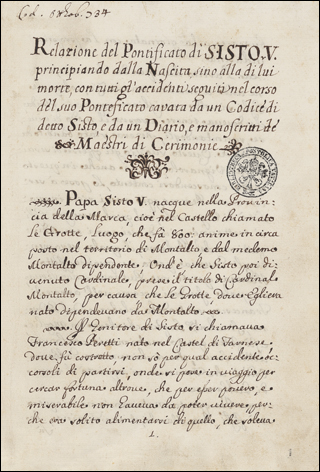 Cod. Ottob. 734
Relazione del Pontificato di SISTO.V.
principiando dalla Nascita, sino alla di lui
morte, con tutti gl'accidenti seguiti nel corso
del suo Ponteficato cavata da un Codice di
detto Sisto, e da un Diario, e manoscritti de
Maestri di Cerimonie
Papa Sisto V. nacque nella Provin-
cia della Marca, cioè nel Castello chiamato
Le Grotte, Luogo, che fà 800: anime in circa
posto nel territorio di Montalto, e dal medemo
Montalto dipendente; Ond'è che Sisto poi di-
uenuto Cardinale, prese il titolo di Cardinal
Montalto, per causa che Le Grotte, doue Egli era
nato dipendeuano da Montalto.
Il Genitore di Sisto si chiamaua
Francesco Peretti nato nel Castel di Varnese,
doue fù costretto, non sò per qual accidente, oc-
corsoli di partirsi, onde si pose in viaggio per
cercar fortuna altroue, che per esser pouero, e
miserabile non haueua da poter viuere, per-
che era solito alimentarsi di quello, che soleua
1.